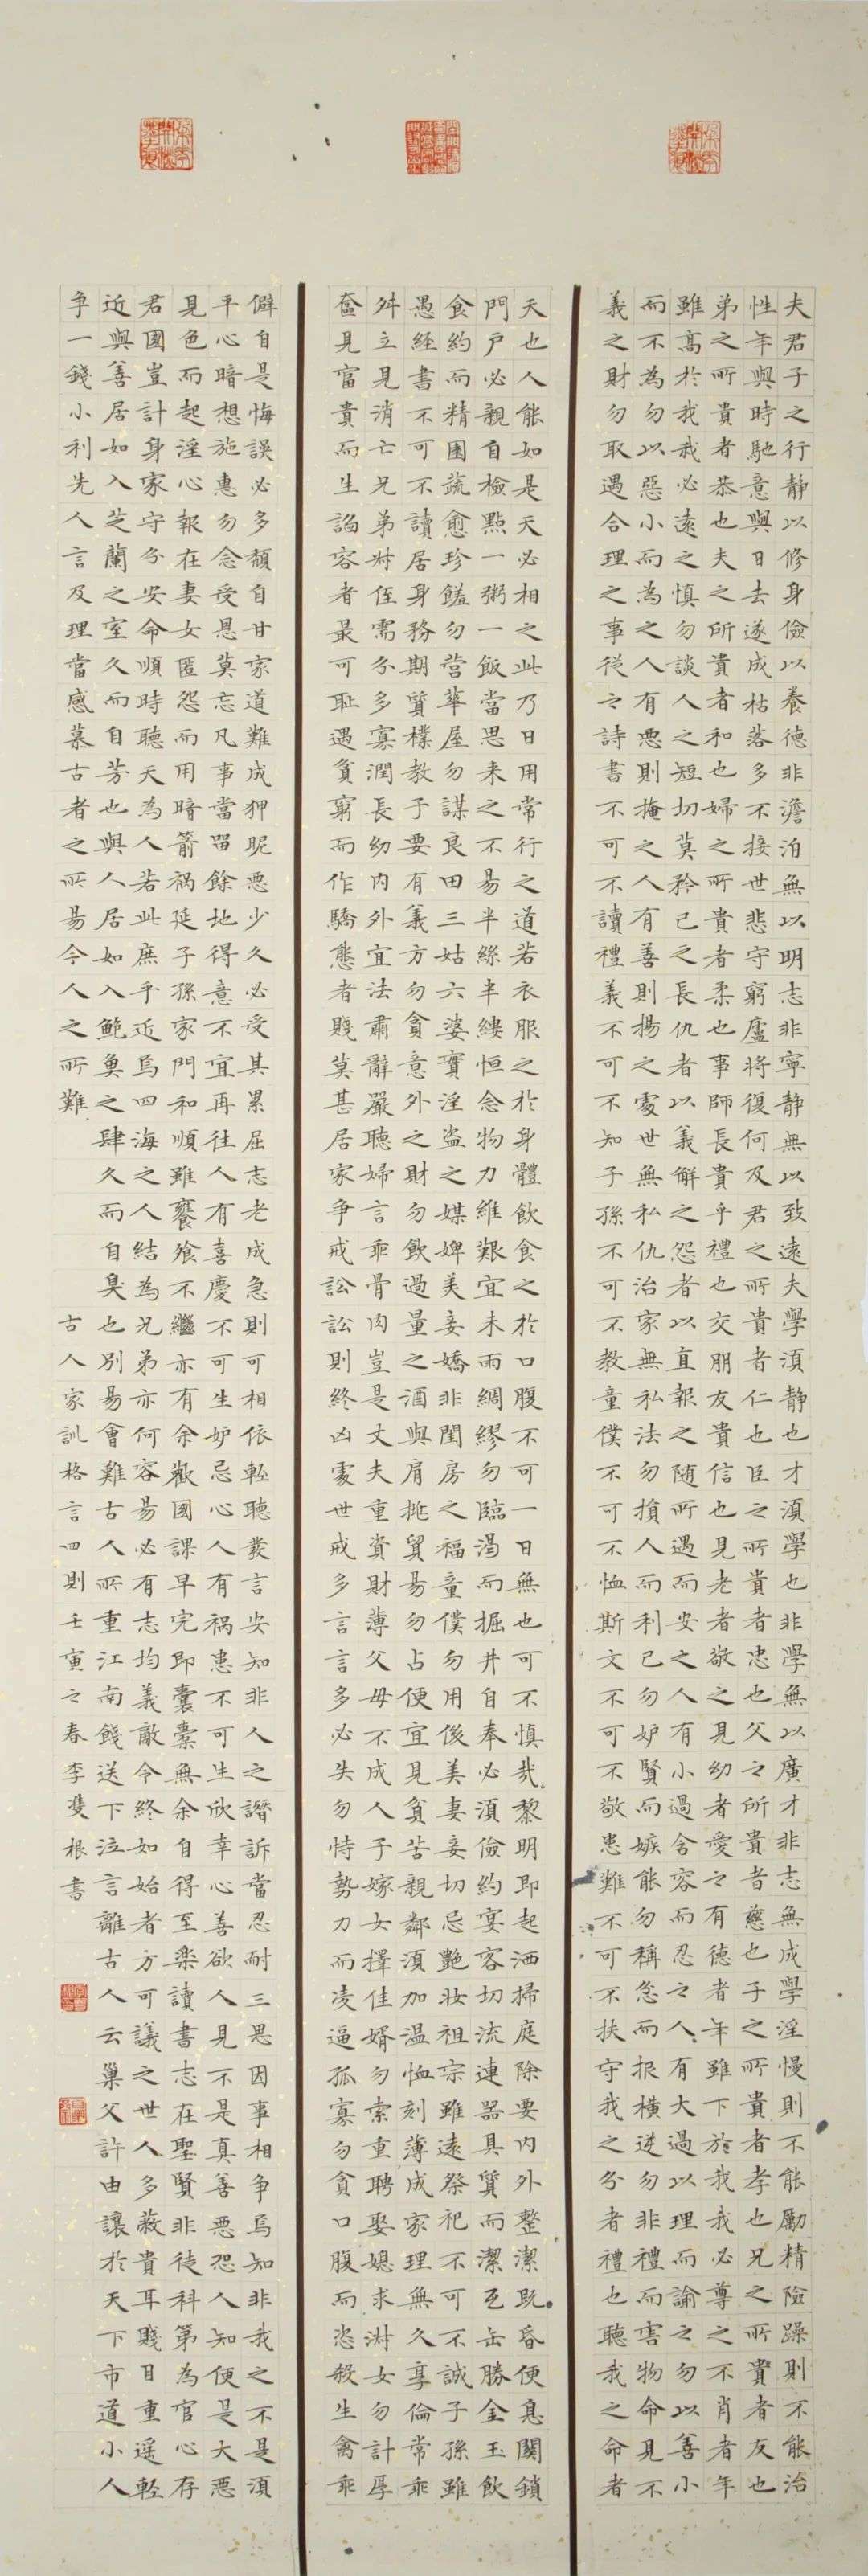 夫君子之行静以修身儉以養德非澹泊無以明志非寧静無以致遠夫學須静也才須學也非學無以廣才非志無成學淫慢則不能勵精險躁則不能治
性年與時馳意與日去遂成枯落多不接世悲守窮廬將復何及君之所貴者仁也臣之所貴者忠也父之所貴者慈也子之所貴者孝也兄之所貴者友也
弟之所貴者恭也夫之所貴者和也婦之所貴者柔也事師長貴乎禮也交朋友貴信也見老者敬之見幼者愛之有德者年雖下於我我必尊之不肖者年
雖高於我我必遠之慎勿談人之短切莫矜己之長仇者以義解之怨者以直報之随所遇而安之人有小過含容而忍之人有大過以理而諭之勿以善小
而不為勿以惡小而為之人有悪則掩之人有善則揚之處世無私仇治家無私法勿損人而利己勿妒賢而嫉能勿稱忿而报横逆勿非禮而害物命見不
義之財勿取遇合理之事從之詩書不可不讀禮義不可不知子孫不可不教童僕不可不恤斯文不可不敬患難不可不扶守我之分者禮也聽我之命者
天也人能如是天必相之此乃日用常行之道若衣服之於身體飲食之於口腹不可一日無也可不慎哉黎明即起洒掃庭除要内外整潔既昏便息關鎖
門户必親自檢點一粥一飯當思来之不易半絲半縷恒念物力維艱宜未雨綢繆勿臨渴而掘井自奉必須儉約宴客切流連器具質而潔瓦缶勝金玉飲
食約而精園蔬愈珍饈勿營華屋勿謀良田三姑六婆實淫盗之媒婢美妾嬌非閨房之福童僕勿用俊美妻妾切忌艷妝祖宗雖遠祭祀不可不誠子孫雖
愚經書不可不讀居身務期質樸教子要有義方勿貪意外之財勿飲過量之酒與肩挑貿易勿占便宜見貧苦親鄰須加温恤刻薄成家理無久享倫常乖
舛立見消亡兄弟对侄需分多寡潤長幼内外宜法肅辭嚴聽婦言乖骨肉豈是丈夫重資財薄父母不成人子嫁女擇佳婿勿索重聘娶媳求淑女勿計厚
奩見富貴而生諂容者最可耻遇貧窮而作驕態者賤莫甚居家争戒訟訟則終凶處世戒多言言多必失勿恃勢力而凌逼孤寡勿貪口腹而恣殺生禽乖
僻自是悔誤必多頹自甘家道難成狎昵悪少久必受其累屈志老成急則可相依輕聽發言安知非人之譖訴當忍耐三思因事相争焉知非我之不是須
平心暗想施惠勿念受恩莫忘凡事當留餘地得意不宜再往人有喜慶不可生妒忌心人有禍患不可生欣幸心善欲人見不是真善悪恐人知便是大悪
見色而起淫心報在妻女匿怨而用暗箭禍延子孫家門和順雖饔飧不繼亦有余歡國課早完即囊橐無余自得至樂讀書志在聖賢非徒科第為官心存
君國豈計身家守分安命順時聽天為人若此庶乎近焉四海之人結為兄弟亦何容易必有志均義敵令終如始者方可議之世人多蔽貴耳賤目重遥輕
近與善居如入芝蘭之室久而自芳也與人居如入鮑魚之肆久而自臭也別易會難古人所重江南餞送下泣言離古人云巢父許由讓於天下市道小人
争一錢小利先人言及理當感慕古者之所易今人之所難
古人家訓格言四則壬寅之春李斐根書